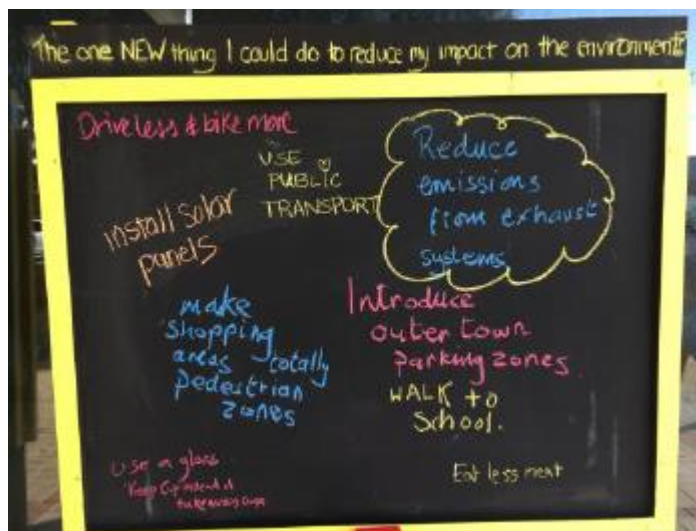 The one NEW thing I could do to reduce my impact on the environment?
Drive less & bike more
USE
PUBLIC
TRANSPORT
Reduce
emissions
from exhaust
systems
install solar
panels
make
shopping
areas totally
pedestrian
zones
Introduce
outer town
parking zones.
WALK to
School.
Use a glass
Keep Cup instead of
takeaway cups
Eat less meat